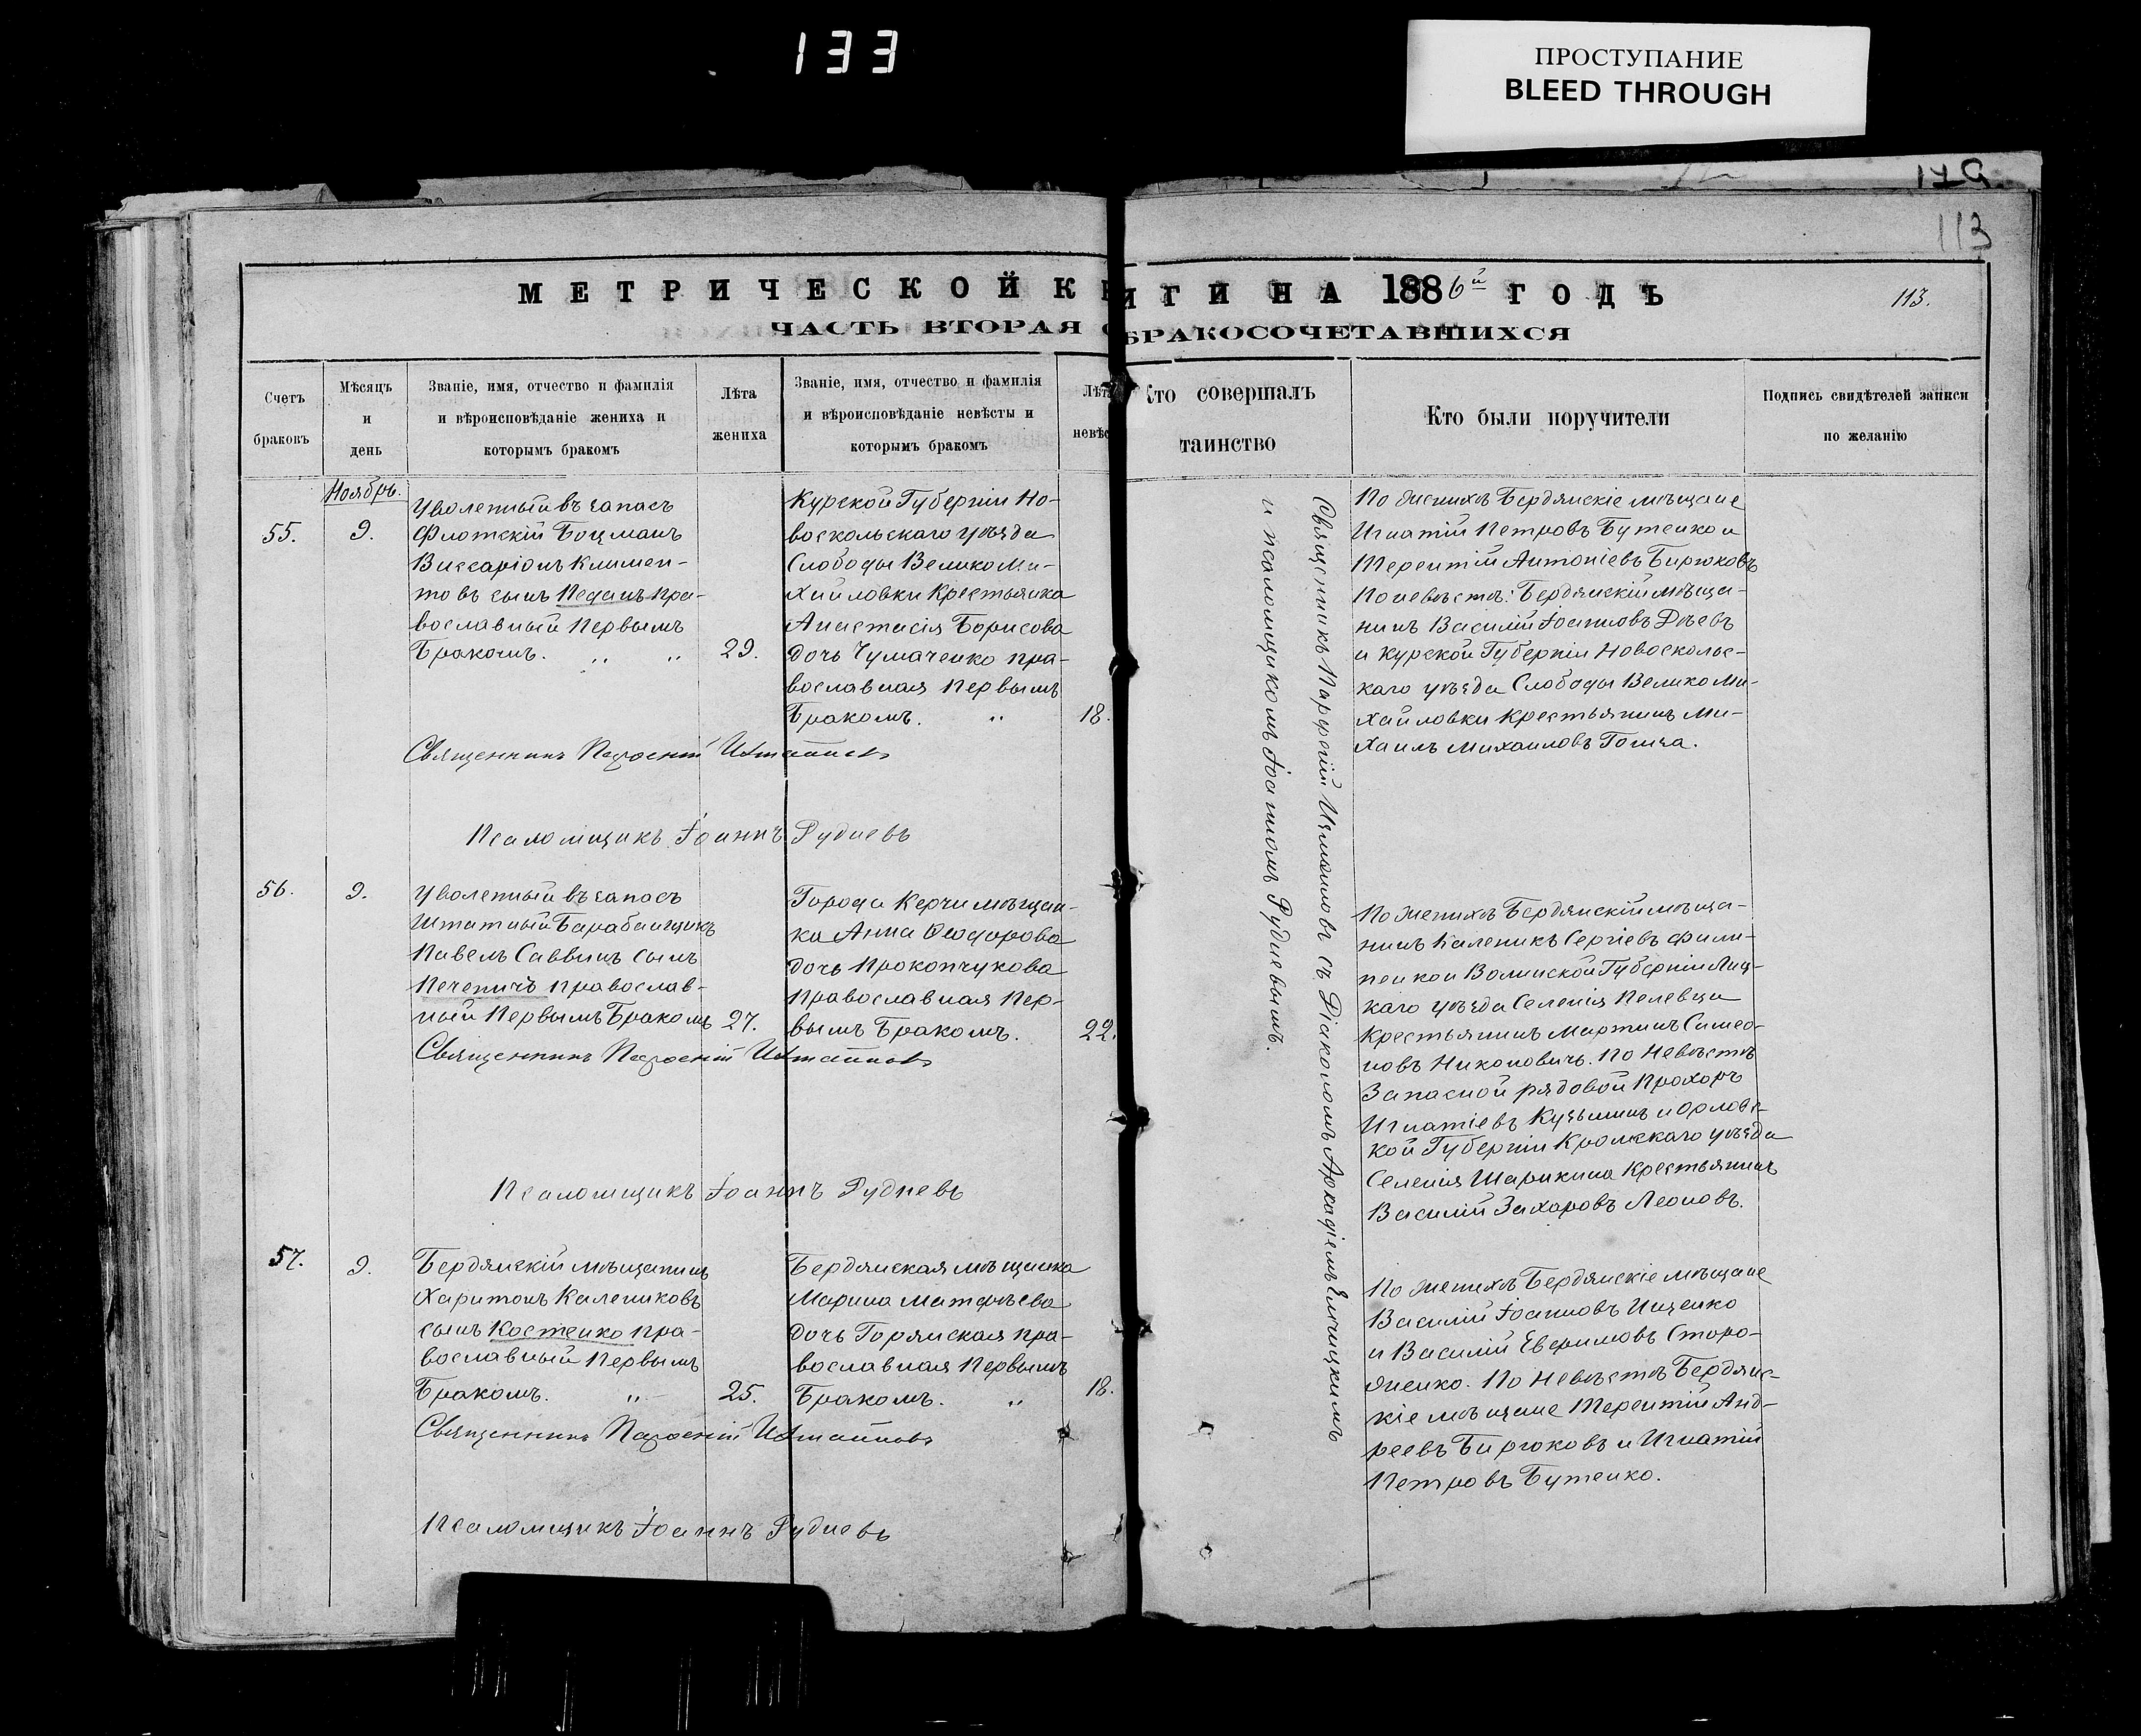 133
ПРОСТУПАНИЕ
BLEED THROUGH
179
113
МЕТРИЧЕСКОЙ КНИГИ НА 1886й ГОДЪ
113.
ЧАСТЬ ВТОРАЯ О БРАКОСОЧЕТАВШИХСЯ
Счетъ
браковъ
Мѣсяцъ
и
день
Званіе, имя, отчество и фамилія
и вѣроисповѣданіе жениха и
которымъ бракомъ
Лѣта
жениха
Званіе, имя, отчество и фамилія
и вѣроисповѣданіе невѣсты и
которымъ бракомъ
Лѣта
невѣс
Кто совершалъ
таинство
Кто были поручители
Подпись свидѣтелей записи
по желанію
Ноябрь.
55.
9.
Уволенный въ запасъ
Флотскій Боцманъ
Виссаріонъ Климен-
товъ сынъ Педанъ пра-
вославный первымъ
Бракомъ. " "
29.
Курской Губерніи Но-
воскольскаго уѣзда
Слободы Велико Ми-
хайловки Крестьянка
Анастасія Борисова
дочь Чумаченко пра-
вославная первымъ
Бракомъ. "
18.
Священникъ Парѳеній
Псаломщикъ Іоаннъ Рудневъ
Священникъ Парѳеній съ Діакономъ Аркадіемъ
и псаломщикомъ Іоанномъ Рудневымъ.
По женихѣ Бердянскіе мѣщане
Игнатій Петровъ Бутенко и
Терентій Антоніевъ Бирюковъ
По невѣстѣ: Бердянскій мѣща-
нинъ Василій Іоанновъ
и Курской Губерніи Новосколь-
каго уѣзда Слободы Велико Ми-
хайловки Крестьянинъ Ми-
хаилъ Михаиловъ
56.
9.
Уволенный въ запасъ
Штатный Барабанщикъ
Павелъ Саввинъ сынъ
Печеничъ православ-
ный Первымъ Бракомъ
27.
Города Керчи мѣщан-
ка Анна Ѳеодорова
дочь Прокопчукова
православная Пер-
вымъ Бракомъ.
22.
Священникъ Парѳеній
Псаломщикъ Іоаннъ Рудневъ
По Женихѣ Бердянскій мѣща-
нинъ Каленикъ Сергіевъ Фили-
пенко и Волынской Губерніи Луц-
каго уѣзда Селенія Пелевца
Крестьянинъ Мартинъ Симео-
новъ Никоновичъ. По Невѣстѣ
Запасной рядовой Прохоръ
Игнатіевъ Кузьминъ и Орловс-
кой Губерніи Кромскаго уѣзда
Селенія Шарикина Крестьянинъ
Василій Захаровъ Леоновъ.
57.
9.
Бердянскій мѣщанинъ
Харитонъ Калениковъ
сынъ Костенко пра-
вославный Первымъ
Бракомъ. "
25.
Бердянская мѣщанка
Марина Матфѣева
дочь Горянская пра-
вославная Первымъ
Бракомъ. "
18.
Священникъ Парѳеній
Псаломщикъ Іоаннъ Рудневъ
По женихѣ Бердянскіе мѣщане
Василій Іоанновъ Ищенко
и Василій Евфимовъ Сторо-
женко. По Невѣстѣ Бердянс-
кіе мѣщане Терентій Анд-
реевъ Бирюковъ и Игнатій
Петровъ Бутенко.